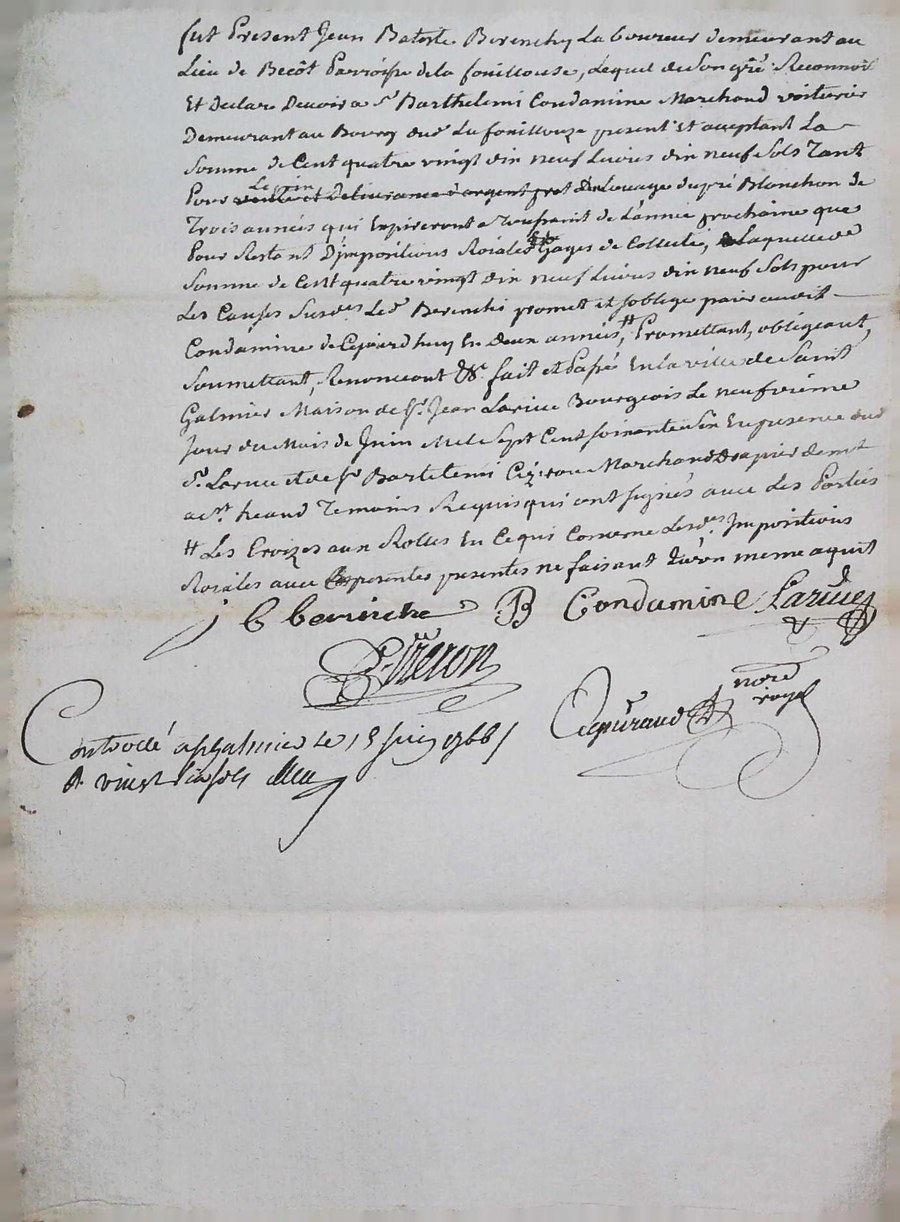 fut Present Jean Batiste Berenchy Laboureur demeurant au
Lieu de Becôt Parroisse de la fouillouse, Lequel de Son gré Reconnoit
Et declare Devoir a Sr. Barthelemi Condamine Marchand voiturier
Demeurant au Bourg dud. La fouillouze present Et acceptant La
Somme de Cent quatre vingt dix neuf Livres dix neuf Sols Tant
Pour Le prix du Louage du pré Blonchon de
Trois années qui Expireront a Toussaint de L'année prochaine que
Pour Restant D'impositions Roiales Et Gages de Collecte, Laquelle de
Somme de Cent quatre vingt dix neuf Livres dix neuf Sols pour
Les Causes Susdes. Led. Berenchi promet et s'oblige paier audit
Condamine de Cejourdhuy En deux années, # Promettant, obligeant,
Soumettant, Renonceant &c. fait et Passé En la ville de Saint
Galmier Maison de Sr. Jean Larive Bourgeois Le neufvième
Jour du Mois de Juin Mil Sept Cent soixante six En presence dud
Sr. Larive et de Sr. Bartelemi Marchand Drapier demt.
aud. St. heand Temoins Requis qui ont signés avec Les Parties
# Les Croizes aux Rolles En Ce qui Concerne Lesdes. Impositions
Roiales avec Les presentes ne faisant qu'un meme aquit
j b berinche B Condamine Larive
nore
royal
Controllé a St Galmier Le 15 juin 1766
R vingt six sols